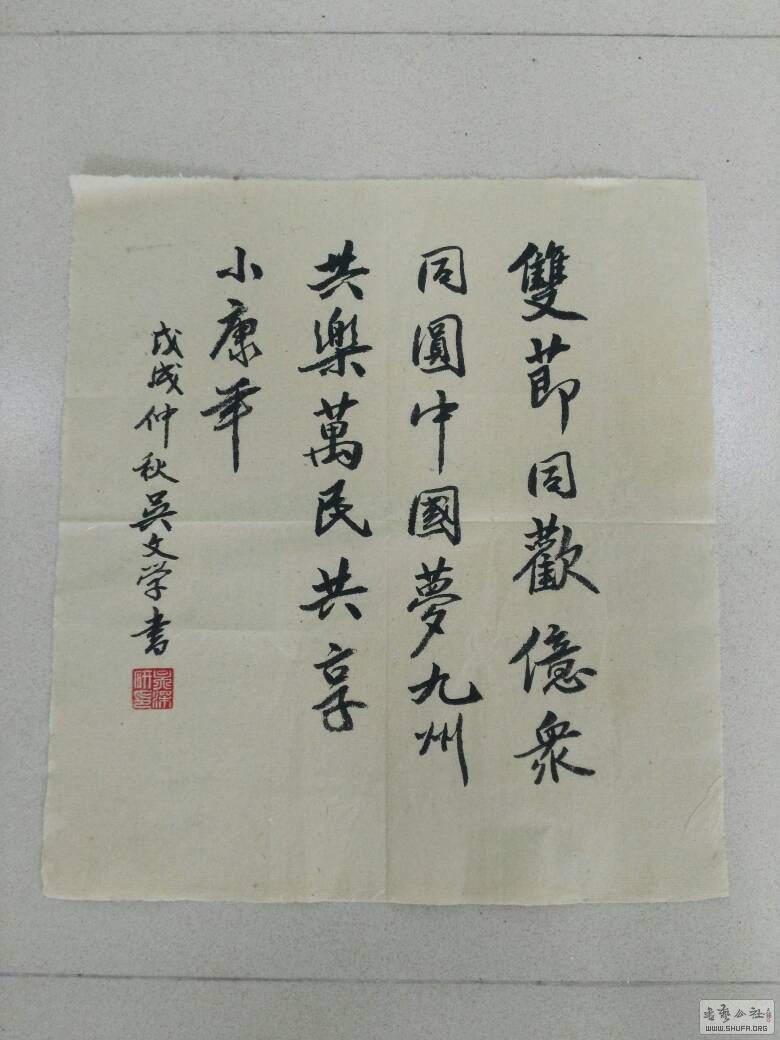 雙節同歡億衆
同圓中國夢九州
共樂萬民共享
小康年
戊戌仲秋吳文学書
WWW.SHUFA.ORG